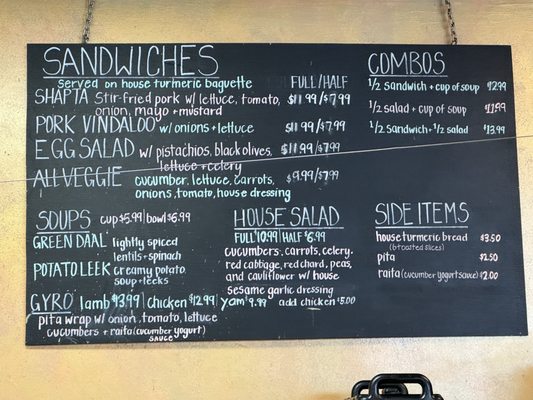 SANDWICHES
served on house turmeric baguette FULL/HALF
SHAPTA Stir-fried pork w/ lettuce, tomato, $11.99/$7.99
onion, mayo + mustard
PORK VINDALOO w/ onions + lettuce $11.99/$7.99
EGG SALAD w/ pistachios, black olives, $11.99/$7.99
lettuce + celery
ALL VEGGIE cucumber, lettuce, carrots, $9.99/$7.99
onions, tomato, house dressing
COMBOS
1/2 sandwich + cup of soup
1/2 salad + cup of soup
1/2 sandwich + 1/2 salad $13.99
SOUPS cup $5.99 | bowl $6.99
GREEN DAAL lightly spiced
lentils + spinach
POTATO LEEK creamy potato
soup + leeks
GYRO lamb $13.99 | chicken $12.99 | yam 9.99 add chicken $5.00
pita wrap w/ onion, tomato, lettuce
cucumbers + raita (cucumber yogurt)
sauce
HOUSE SALAD
FULL $10.99 | HALF $6.99
cucumbers, carrots, celery,
red cabbage, red chard, peas,
and cauliflower w/ house
sesame garlic dressing
SIDE ITEMS
house turmeric bread $3.50
(6 toasted slices)
pita $2.50
raita (cucumber yogurt sauce) $2.00